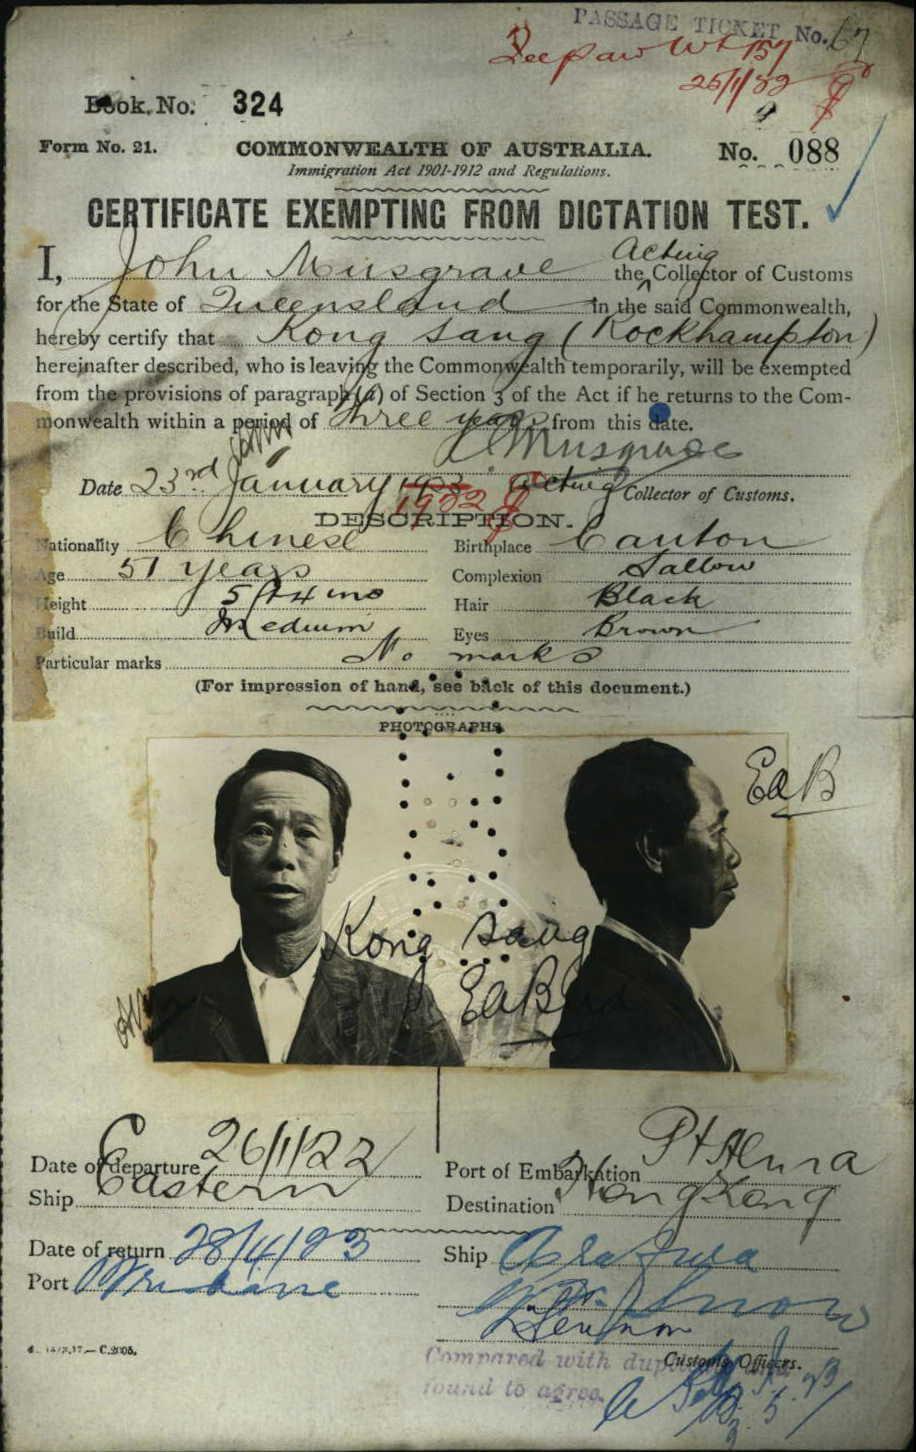 PASSAGE TICKET No. 67
25/1/22
Book. No. 324
Form No. 21. COMMONWEALTH OF AUSTRALIA. No. 088
Immigration Act 1901-1912 and Regulations.
CERTIFICATE EXEMPTING FROM DICTATION TEST.
I, John Musgrave the Acting Collector of Customs
for the State of Queensland in the said Commonwealth,
hereby certify that Kong Sang (Rockhampton)
hereinafter described, who is leaving the Commonwealth temporarily, will be exempted
from the provisions of paragraph (a) of Section 3 of the Act if he returns to the Com-
monwealth within a period of three years from this date.
J Musgrave
Date 23rd January 1922 Acting Collector of Customs.
DESCRIPTION.
Nationality Chinese Birthplace Canton
Age 51 years Complexion Sallow
Height 5 ft 4 ins Hair Black
Build Medium Eyes Brown
Particular marks No marks
(For impression of hand, see back of this document.)
PHOTOGRAPHS.
EaB
Kong Sang
EaB
Date of departure 26/1/22 Port of Embarkation Pt Alma
Ship Eastern Destination Hong Kong
Date of return 28/4/23 Ship Arafura
Port Brisbane
Customs Officers.
Compared with
found to agree.